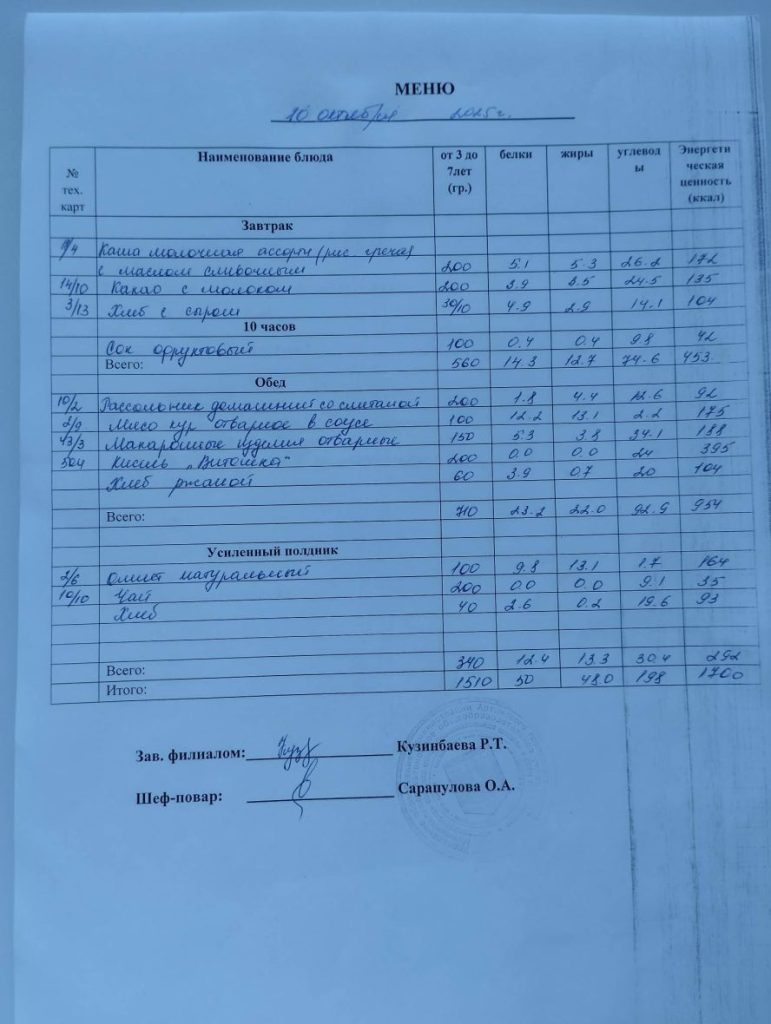 МЕНЮ
10 октября 2025 г.
№ тех. карт Наименование блюда от 3 до 7лет (гр.) белки жиры углеводы Энергетическая ценность (ккал)
Завтрак
9/4 Каша молочная ассорти (рис. греча)
с маслом сливочным 200 5.1 5.3 26.2 172
14/10 Какао с молоком 200 3.9 3.5 24.5 135
3/13 Хлеб с сыром 30/10 4.9 2.9 14.1 104
10 часов
Сок фруктовый 100 0.4 0.4 9.8 42
Всего: 560 14.3 12.7 74.6 453
Обед
10/2 Рассольник домашний со сметаной 200 1.8 4.4 12.6 92
2/9 Мясо кур отварное в соусе 100 12.2 13.1 2.2 175
43/3 Макаронные изделия отварные 150 5.3 3.8 34.1 188
504 Кисель „Витошка" 200 0.0 0.0 24 395
Хлеб ржаной 60 3.9 0.7 20 104
Всего: 710 23.2 22.0 92.9 954
Усиленный полдник
2/6 Омлет натуральный 100 9.8 13.1 1.7 164
10/10 Чай 200 0.0 0.0 9.1 35
Хлеб 40 2.6 0.2 19.6 93
Всего: 340 12.4 13.3 30.4 292
Итого: 1510 50 48.0 198 1700
Зав. филиалом: Кузинбаева Р.Т.
Шеф-повар: Сарапулова О.А.